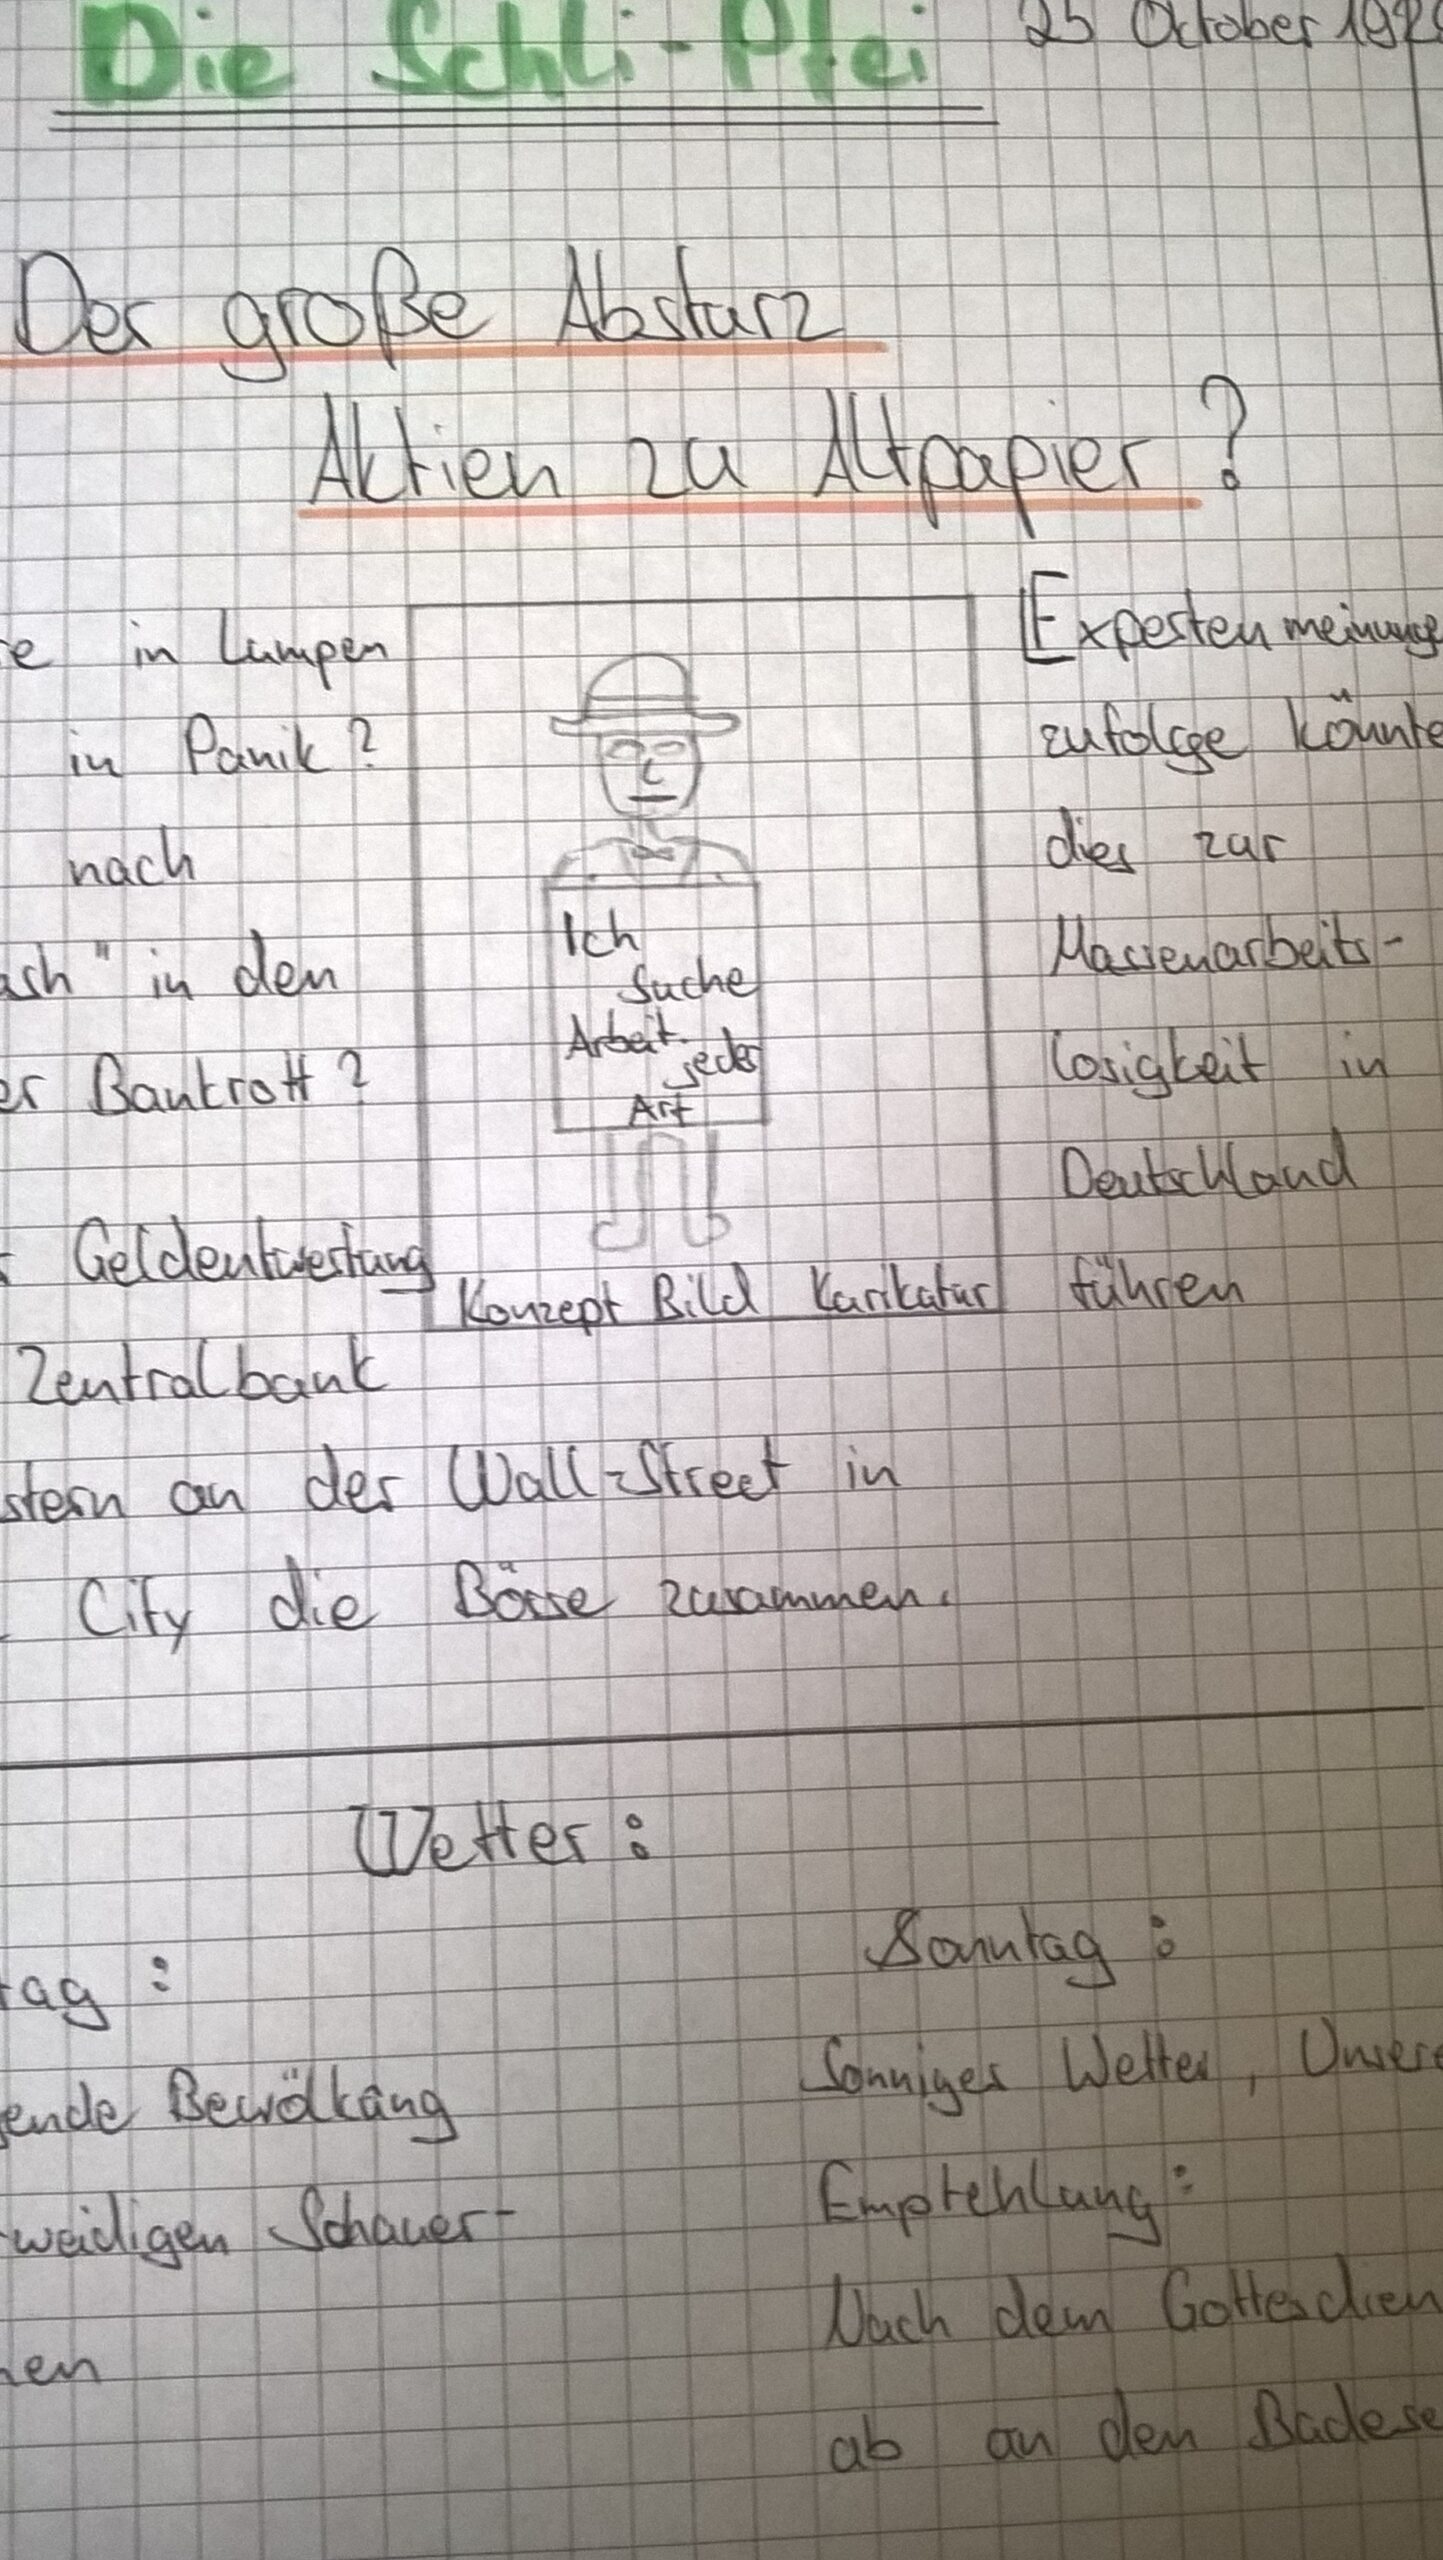 Die Schli-Pfei
25 October 192
Der große Absturz
Aktien zu Altpapier?
e in Lumpen
in Panik?
nach
ash" in den
er Bankrott?
Geldentwertung
Zentralbank
stern an der Wall-Street in
City die Börse zusammen.
Ich
suche
Arbeit
jeder
Art
Konzept Bild Karikatur
Expertenmeinunge
zufolge könnte
dies zur
Massenarbeits-
losigkeit in
Deutschland
führen
Wetter:
tag:
ende Bewölkung
weidigen Schauer-
en
Sonntag:
Sonniges Wetter, Unsere
Empfehlung:
Nach dem Gottesdien
ab an den Badese